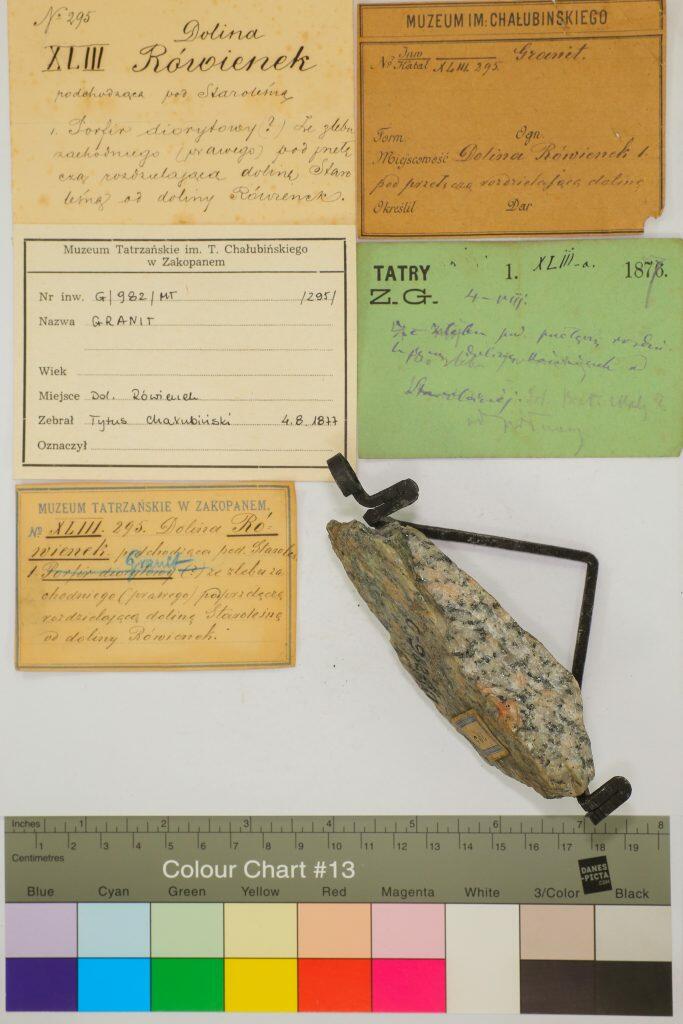 No 295
Dolina
XLIII Rówienek
podchodząca pod Staroleśną
1. Porfir diorytowy (?) Ze żlebu
zachodniego (prawego) pod przełę
czą rozdzielającą dolinę Staro
leśną od doliny Rówienek.
MUZEUM IM: CHAŁUBIŃSKIEGO
No Inw Katal XLIII 295 Granit.
Form Ogn.
Miejscowość Dolina Rówienek 1.
pod przełęczą rozdzielającą dolinę
Określił Dar
Muzeum Tatrzańskie im. T. Chałubińskiego
w Zakopanem
Nr inw. G/982/MT /295/
Nazwa GRANIT
Wiek
Miejsce Dol. Rówienek
Zebrał Tytus Chałubiński 4.8.1877
Oznaczył
TATRY 1. XLIII-a. 1877.
Z.G. 4-VIII.
Ze żlebu pod
Staroleśnej.
od północy
MUZEUM TATRZAŃSKIE W ZAKOPANEM.
No XLIII. 295. Dolina Ró-
wienek podchodząca pod Staroleś.
Granit
1 Porfir diorytowy (?) ze żlebu za
chodniego (prawego) pod przełęczą
rozdzielającą dolinę Staroleśną
od doliny Rówienek.
Inches 1 2 3 4 5 6 7 8
Centimetres 1 2 3 4 5 6 7 8 9 10 11 12 13 14 15 16 17 18 19
Colour Chart #13
DANES
-PICTA
.COM
Blue Cyan Green Yellow Red Magenta White 3/Color Black